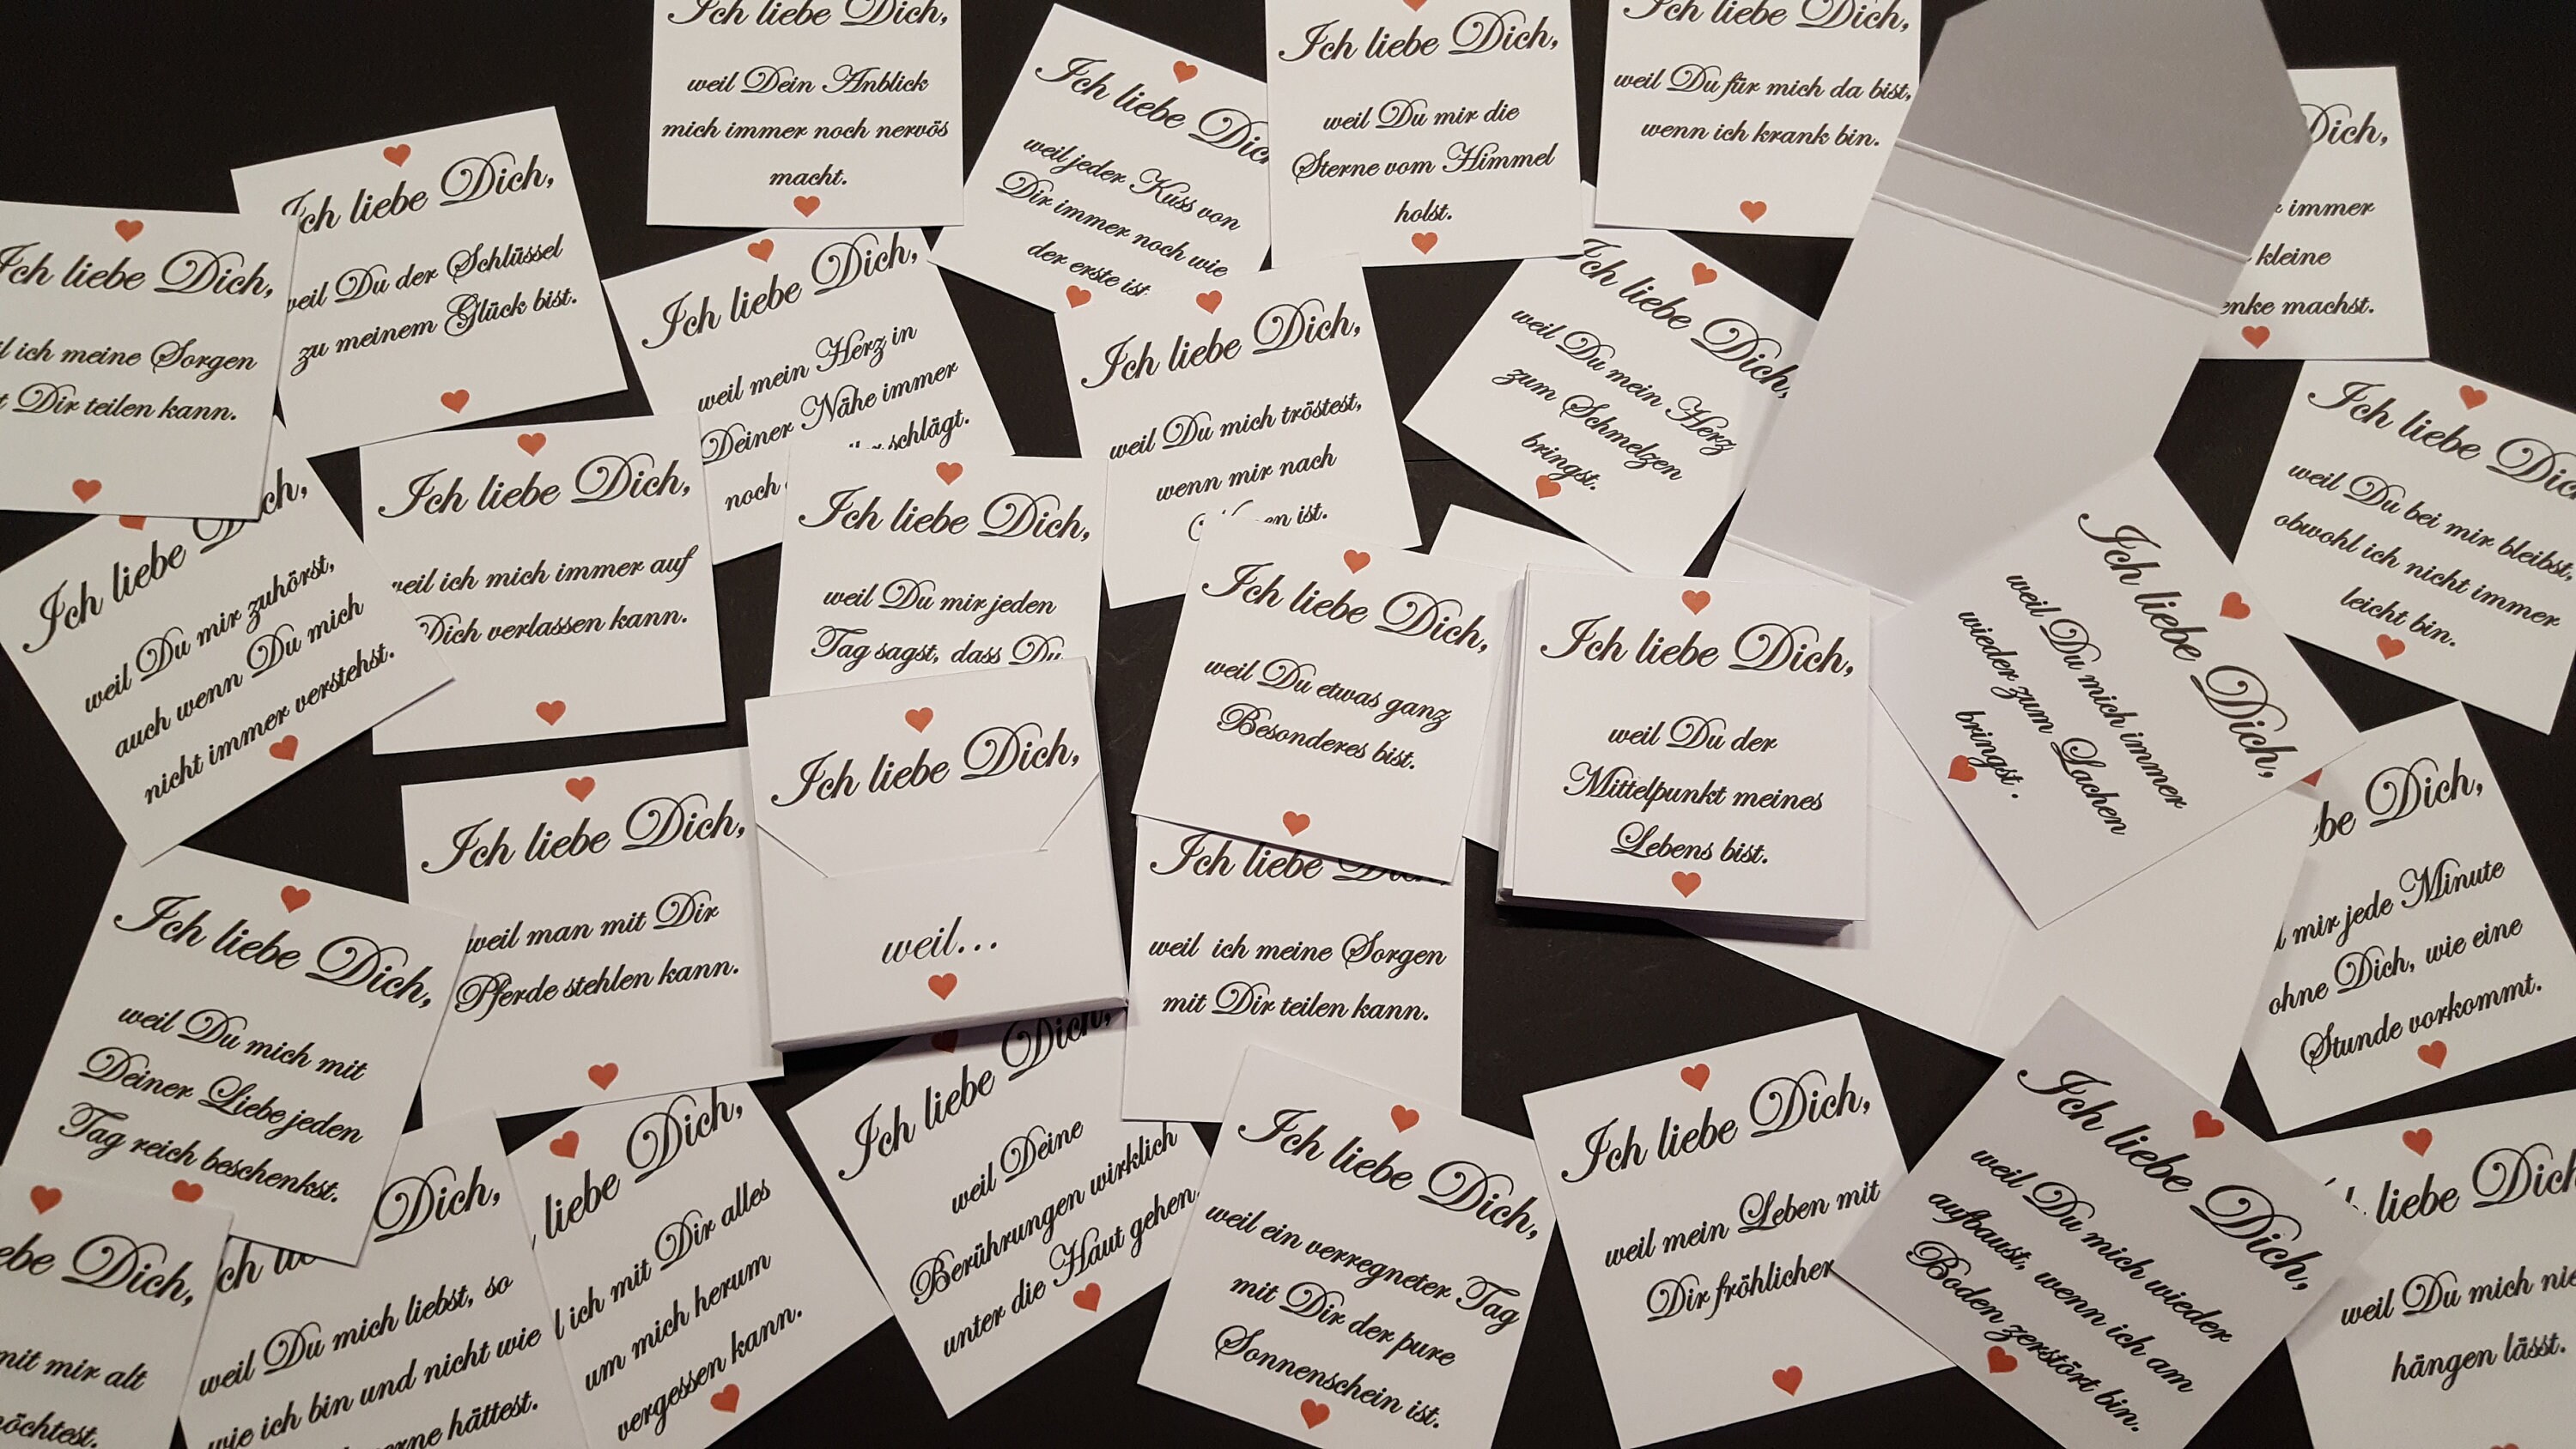 Ich liebe Dich,
weil Dein Anblick
mich immer noch nervös
macht.
Ich liebe
weil jeder Kuss von
Dir immer noch wie
der erste ist.
Ich liebe Dich,
weil Du mir die
Sterne vom Himmel
holst.
Ich liebe Dich,
weil Du für mich da bist,
wenn ich krank bin.
Dich,
immer
kleine
machst.
Ich liebe Dich,
weil Du der Schlüssel
zu meinem Glück bist.
Ich liebe Dich,
ich meine Sorgen
Dir teilen kann.
Ich liebe Dich,
weil mein Herz in
Deiner Nähe immer
noch schlägt.
Ich liebe Dich,
weil Du mich tröstest,
wenn mir nach
ist.
Ich liebe Dich,
weil Du mein Herz
zum Schmelzen
bringst.
Ich liebe
weil Du bei mir bleibst,
obwohl ich nicht immer
leicht bin.
Ich liebe Dich,
weil Du mir zuhörst,
auch wenn Du mich
nicht immer verstehst.
Ich liebe Dich,
weil ich mich immer auf
Dich verlassen kann.
Ich liebe Dich,
weil Du mir jeden
Tag sagst, dass Du
Ich liebe Dich,
weil Du etwas ganz
Besonderes bist.
Ich liebe Dich,
weil Du der
Mittelpunkt meines
Lebens bist.
Ich liebe Dich,
weil Du mich immer
wieder zum Lachen
bringst.
Ich liebe Dich,
weil...
Ich liebe Dich,
weil man mit Dir
Pferde stehlen kann.
Ich liebe Dich,
weil ich meine Sorgen
mit Dir teilen kann.
Dich,
mir jede Minute
ohne Dich, wie eine
Stunde vorkommt.
Ich liebe Dich,
weil Du mich mit
Deiner Liebe jeden
Tag reich beschenkst.
Ich liebe Dich,
weil Deine
Berührungen wirklich
unter die Haut gehen.
liebe Dich,
ich mit Dir alles
um mich herum
vergessen kann.
Ich liebe Dich,
weil ein verregneter Tag
mit Dir der pure
Sonnenschein ist.
Ich liebe Dich,
weil mein Leben mit
Dir fröhlicher
Ich liebe Dich,
weil Du mich wieder
aufbaust, wenn ich am
Boden zerstört bin.
liebe Dich
weil Du mich
hängen lässt.
Dich,
weil Du mich liebst, so
wie ich bin und nicht wie
hättest.
Dich,
mit mir alt